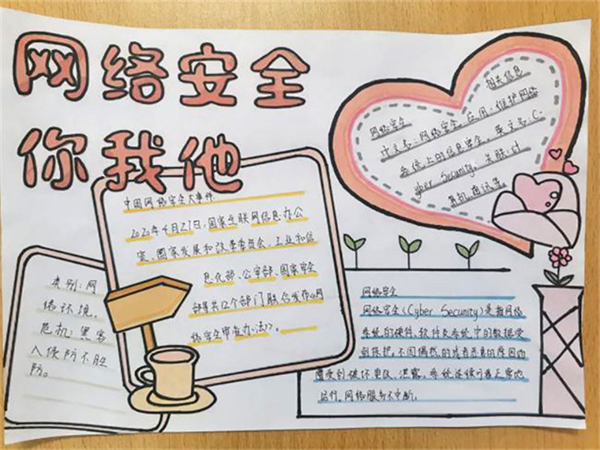 网络安全
你我他
中国网络安全大事件
2020年4月27日,国家互联网信息办公
室、国家发展和改革委员会、工业和信
息化部、公安部、国家安全
部等共12个部门联合发布《网
络安全审查办法》。
类别:网
络环境,
危机:黑客
入侵防不胜
防。
相关信息
网络安全
计之名:网络安全,应用:维护网络
系统上的信息安全,英文名:C
yber Security,关联:计
算机通讯等
网络安全
网络安全(Cyber Security)是指网络
系统的硬件,软件及系统中的数据受
到保护,不因偶然的或者恶意的原因而
遭受到破坏更改、泄露,系统连续可靠正常地
运行,网络服务不中断。